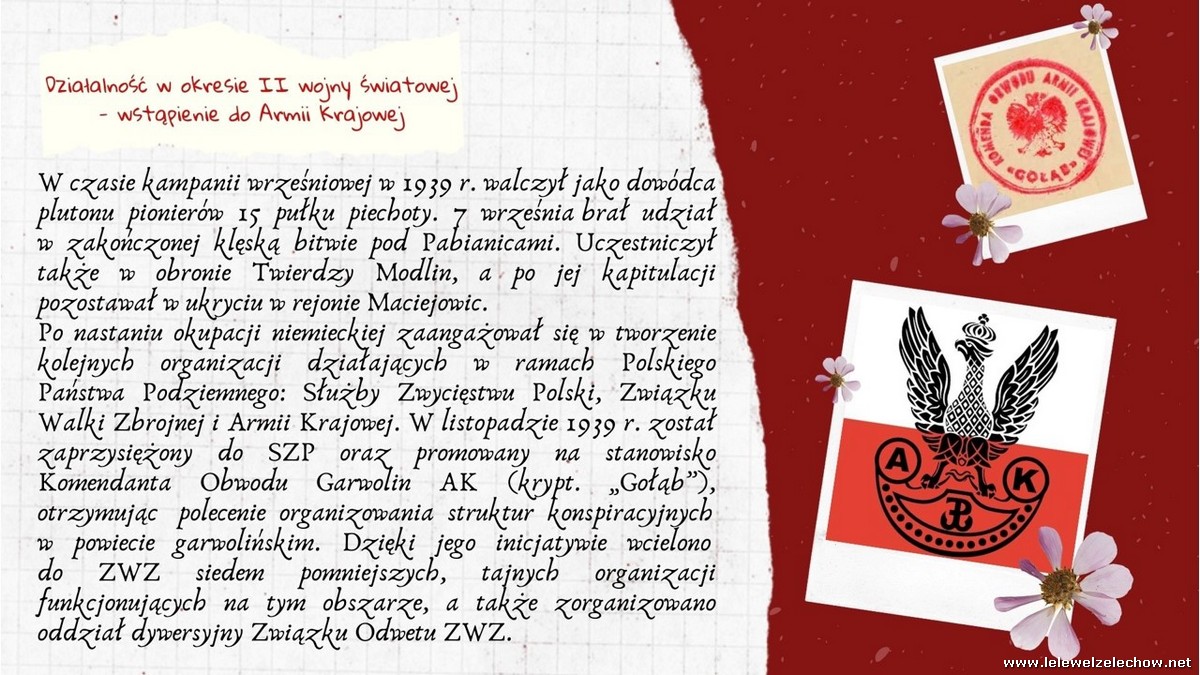 Działalność w okresie II wojny światowej
- wstąpienie do Armii Krajowej
W czasie kampanii wrześniowej w 1939 r. walczył jako dowódca
plutonu pionierów 15 pułku piechoty. 7 września brał udział
w zakończonej klęską bitwie pod Pabianicami. Uczestniczył
także w obronie Twierdzy Modlin, a po jej kapitulacji
pozostawał w ukryciu w rejonie Maciejowic.
Po nastaniu okupacji niemieckiej zaangażował się w tworzenie
kolejnych organizacji działających w ramach Polskiego
Państwa Podziemnego: Służby Zwycięstwu Polski, Związku
Walki Zbrojnej i Armii Krajowej. W listopadzie 1939 r. został
zaprzysiężony do SZP oraz promowany na stanowisko
Komendanta Obwodu Garwolin AK (krypt. „Gołąb”),
otrzymując polecenie organizowania struktur konspiracyjnych
w powiecie garwolińskim. Dzięki jego inicjatywie wcielono
do ZWZ siedem pomniejszych, tajnych organizacji
funkcjonujących na tym obszarze, a także zorganizowano
oddział dywersyjny Związku Odwetu ZWZ.
KOMENDA OBWODU ARMII KRAJOWEJ
«GOŁĄB»
A K
www.lelewelzelechow.net